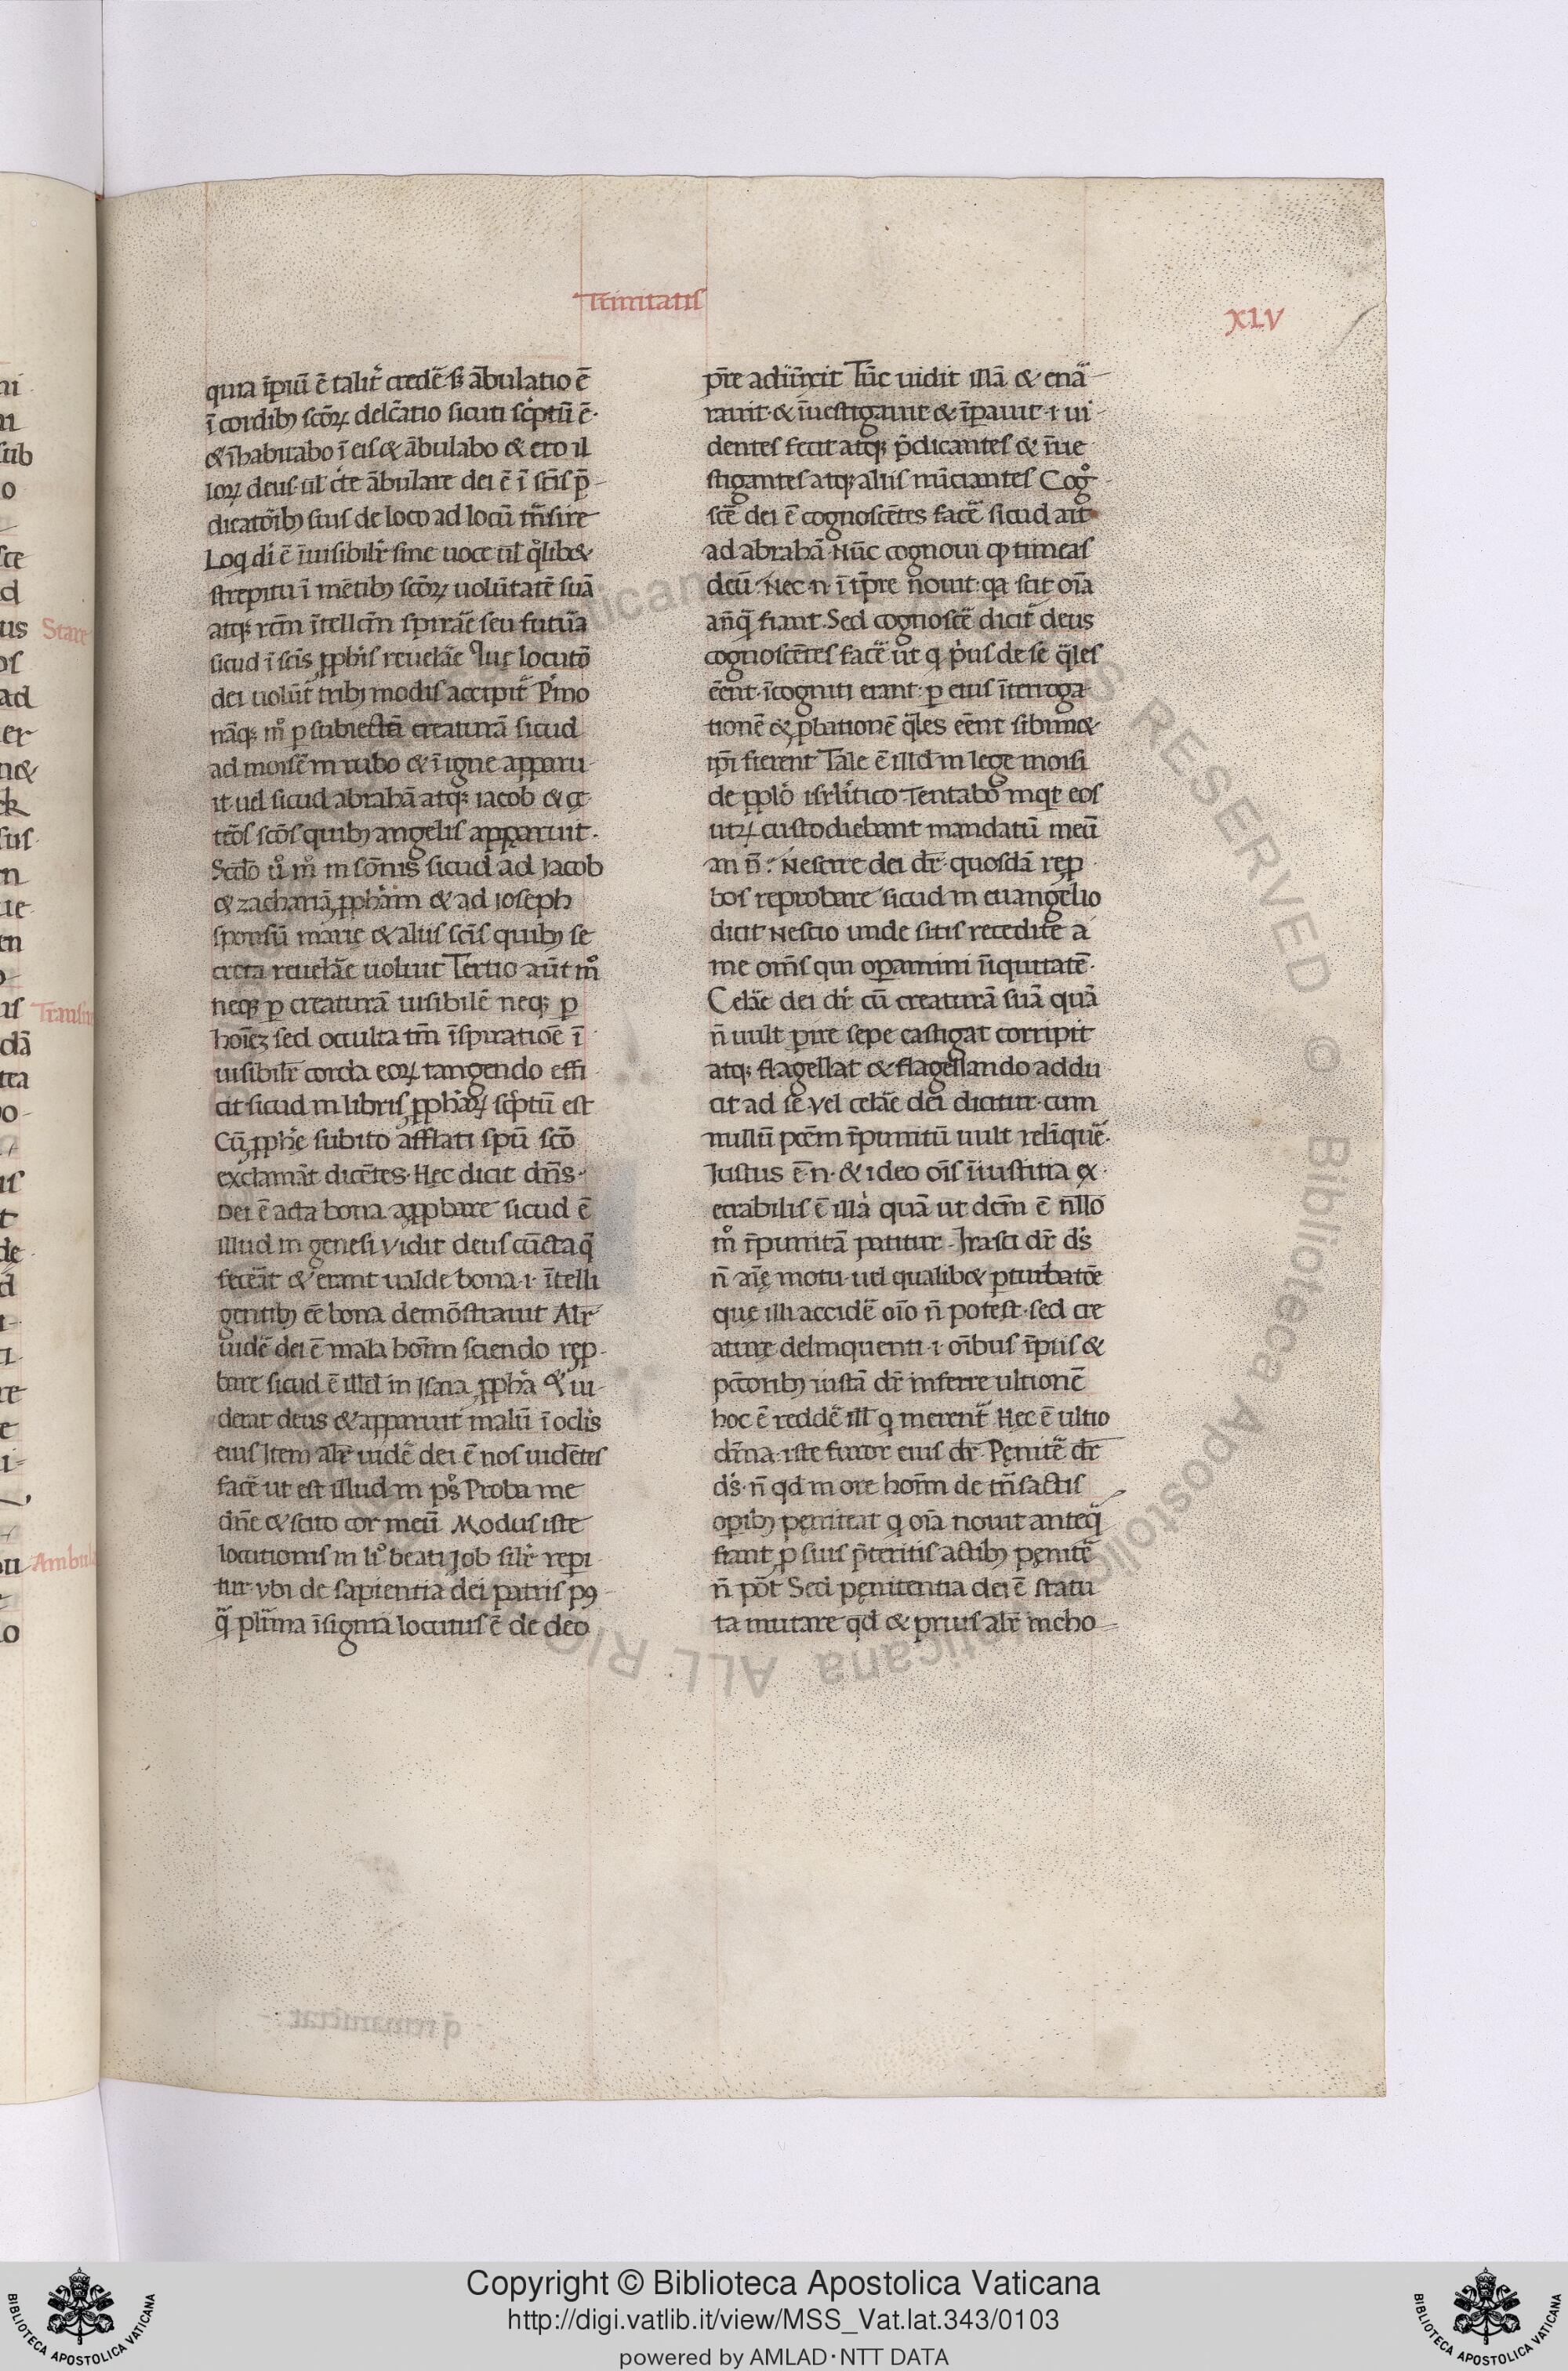 Trinitatis
XLV
quia īpiū ē talit̄ credē· s; ābulatio ē
ī cordib; scōꝝ delc̄atio sicuti sc̄ptū ē·
& īhabitabo ī eis & ābulabo & ero il
loꝝ deus· ul̄ c̄te ābulare dei ē ī sc̄is p̄
dicatōib; suis de loco ad locū trāsire
Loq̇ di ē īuisibilr̄ sine uoce ul̄ q̊lib&
strepitu ī mētib; scōꝝ uolūtatē suā
atq; rc̄m ītellc̄m spirare seu futura
sicud ī scīs ꝓphis reuelāe
dei uolūt tribꝫ modis accipit̄ Ṗmo
nāq; m̊ ꝑ subiectā creaturā sicud
ad moisē in rubo & ī igne apparu
it· uel sicud abrahā atq; iacob & cę
teros scōs quib; angelis apparuit·
Scdo ů m̊ in sōnis sicud ad Jacob
& zachariā ꝓphām & ad ioseph
sponsū marię & aliis scīs quib; se
creta reuelāe uoluit Tertio aūt m̊
neq; ꝑ creaturā uisibilē neq; ꝑ
hoīez sed occulta tm̄ īspiratiōe ī
uisibilr̄ corda eoꝝ tangendo effi
cit sicud in libris ꝓphaꝝ sc̄ptū est
Cū ꝓphē subito afflati spū scō
exclamāt dicētes· Hęc dicit dn̄s·
Dei ē acta bona approbare sicud ē
illud in genesi Vidit deus cūcta q̄
fecāt & erant ualde bona· i· ītelli
gentib; eē bona demōstrauit Alr̄
uidē dei ē mala hoīm sciendo rep
bare sicud ē illd in Isaia ꝓphā & ui
debat deus & apparuit malū ī oclis
eius Item alr̄ uidē dei ē nos uidētes
facē ut est illud in ps̊ Proba me
dn̄e & scito cor meū Modus iste
locutionis in li̊ beati Job silr̄ repi
tur· Vbi de sapientia dei patris pꝯ
q̄ plīma īsignia locutus ē de deo
pr̄e adiūxit Tūc uidit illā & enā
rauit· & īuestigauit & īparauit· i· ui
dentes fecit atq; p̄dicantes & īue
stigantes atq; aliis nūciantes Cog̊
scē dei ē cognoscētes facē sicud ait
ad abrahā Nūc cognoui qꝫ timeas
deū· Nec n̄ ī tp̄re nouit· qa scit oīa
an̄q̄ fiant· Sed cognoscē dicit̄ deus
cognoscētes facē ut q ṗus de sē q̄les
eēnt· īcogniti erant· ꝑ eius īterroga
tionē & ꝓbationē q̄les eēnt sibim&
ip̄i fierent Tale ē illd in lege moisi
de ꝓplo isrlitico Tentabo inqt eos
utꝝ custodiebant mandatū meū
an n̄· Nescire dei dr̄· quosdā rep
bos reprobare· sicud in euangelio
dicit Nescio unde sitis recedite a
me om̄s qui operamini īiquitatē·
Celāe dei dr̄ cū creaturā suā quā
n̄ uult perire sepe castigat corripit
atq; flagellat & flagellando addu
cit ad sē Vel celāe dei dicitur· cum
nullū pcc̄m īpunitū uult relīquē·
Justus ē· n· & ideo oīs īiustitia ex
ecrabilis ē illā quā ut dc̄m ē n̄llo
m̊ īpunitā patitur· Irasci dr̄ ds
n̄ aīę motu· uel qualib& ꝑturbatōe
quę illi accidē oīo n̄ potest· sed cre
aturę delinquenti· i· oībus īpiis &
pc̄toribꝫ iustā dr̄ inferre ultionē
hoc ē reddē ill q merent̄ Hęc ē ultio
diuīna· iste furor eius dr̄· Pęnitē dr̄
ds· n̄ qd in ore hoīm de trāsactis
opib; pęniteat q oīa nouit anteq̄
fiant ꝑ suis p̄teritis actib; pęnitē
n̄ pōt Sed pęnitentia dei ē statu
ta mutare qd & prius alr̄ incho